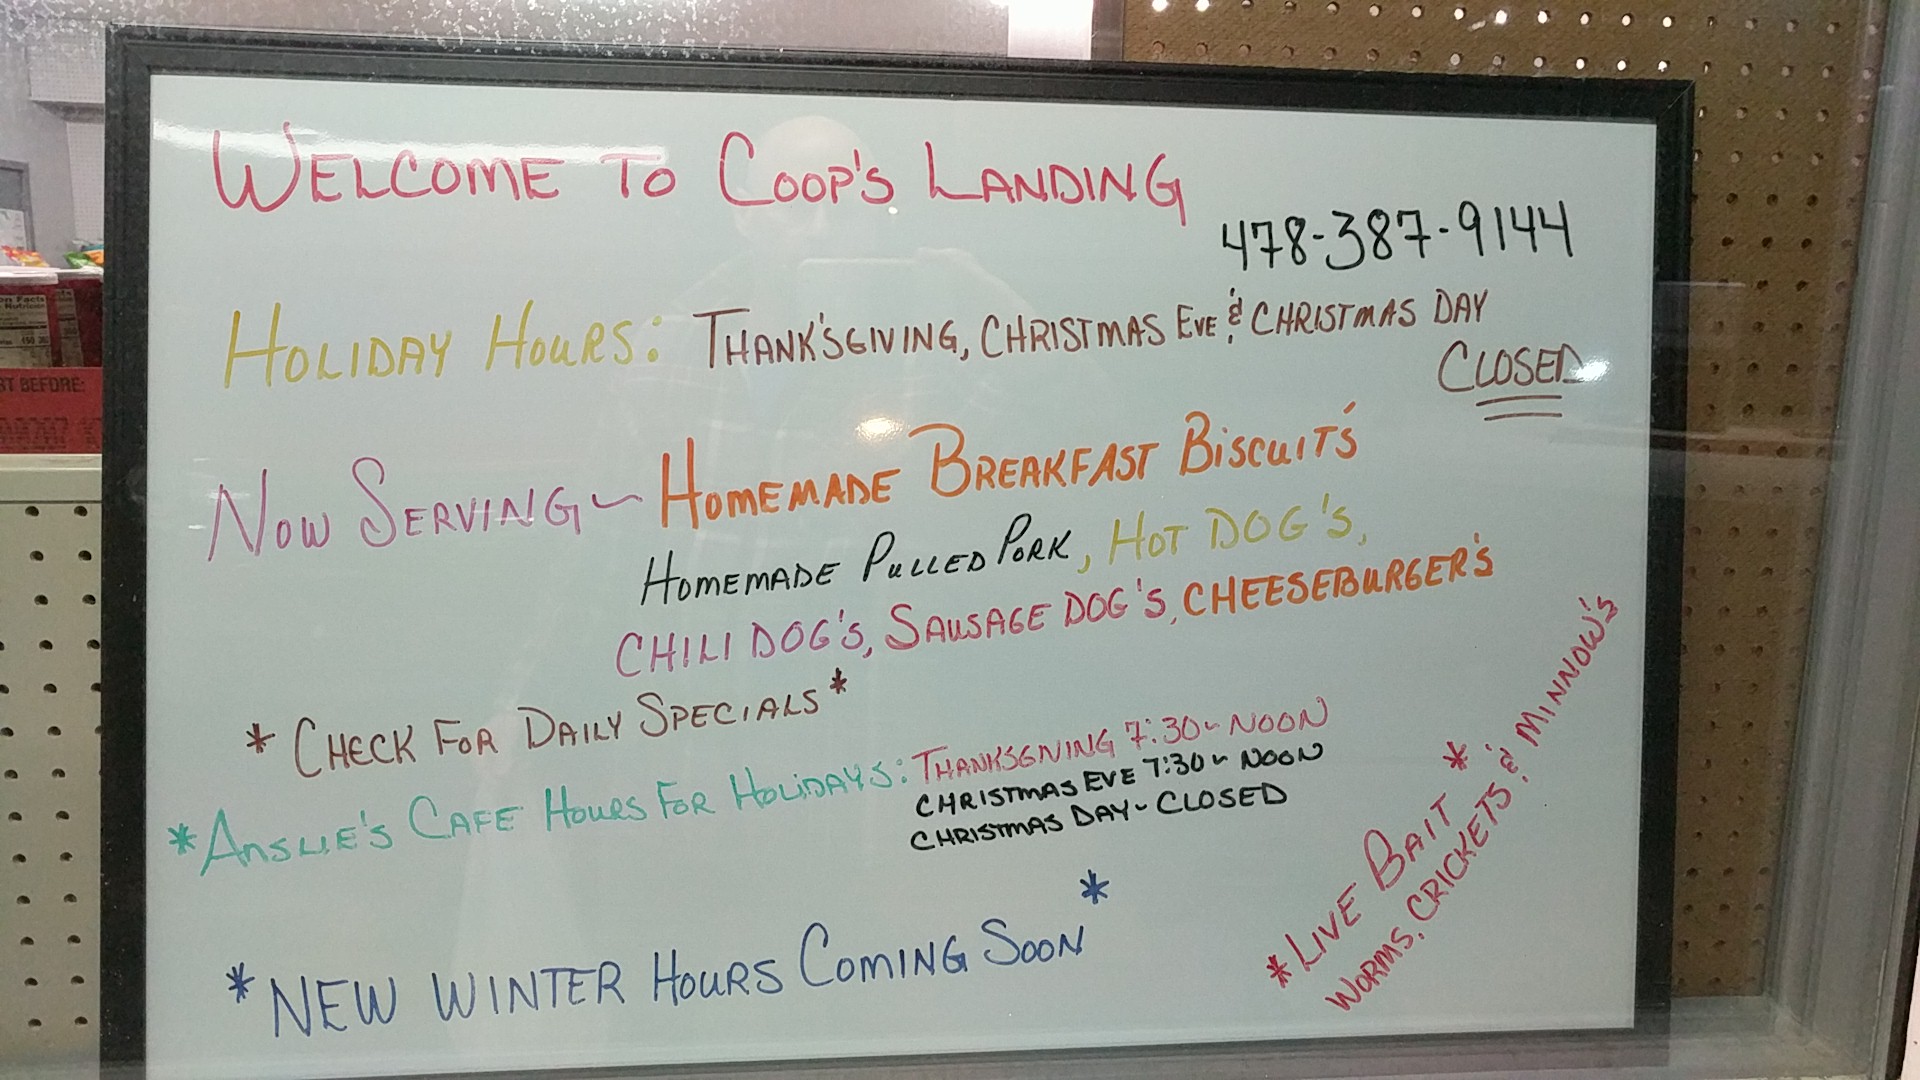 WELCOME TO COOP'S LANDING
478-387-9144
HOLIDAY HOURS: THANK'SGIVING, CHRISTMAS EVE & CHRISTMAS DAY
CLOSED
NOW SERVING ~ HOMEMADE BREAKFAST BISCUIT'S
HOMEMADE PULLED PORK, HOT DOG'S,
CHILI DOG'S, SAUSAGE DOG'S, CHEESEBURGER'S
* CHECK FOR DAILY SPECIALS *
*ANSLIE'S CAFE HOURS FOR HOLIDAYS: THANKSGIVING 7:30 ~ NOON
CHRISTMAS EVE 7:30 ~ NOON
CHRISTMAS DAY ~ CLOSED
*NEW WINTER HOURS COMING SOON*
*LIVE BAIT*
WORMS, CRICKETS, & MINNOW'S
Facts
BEFORE: